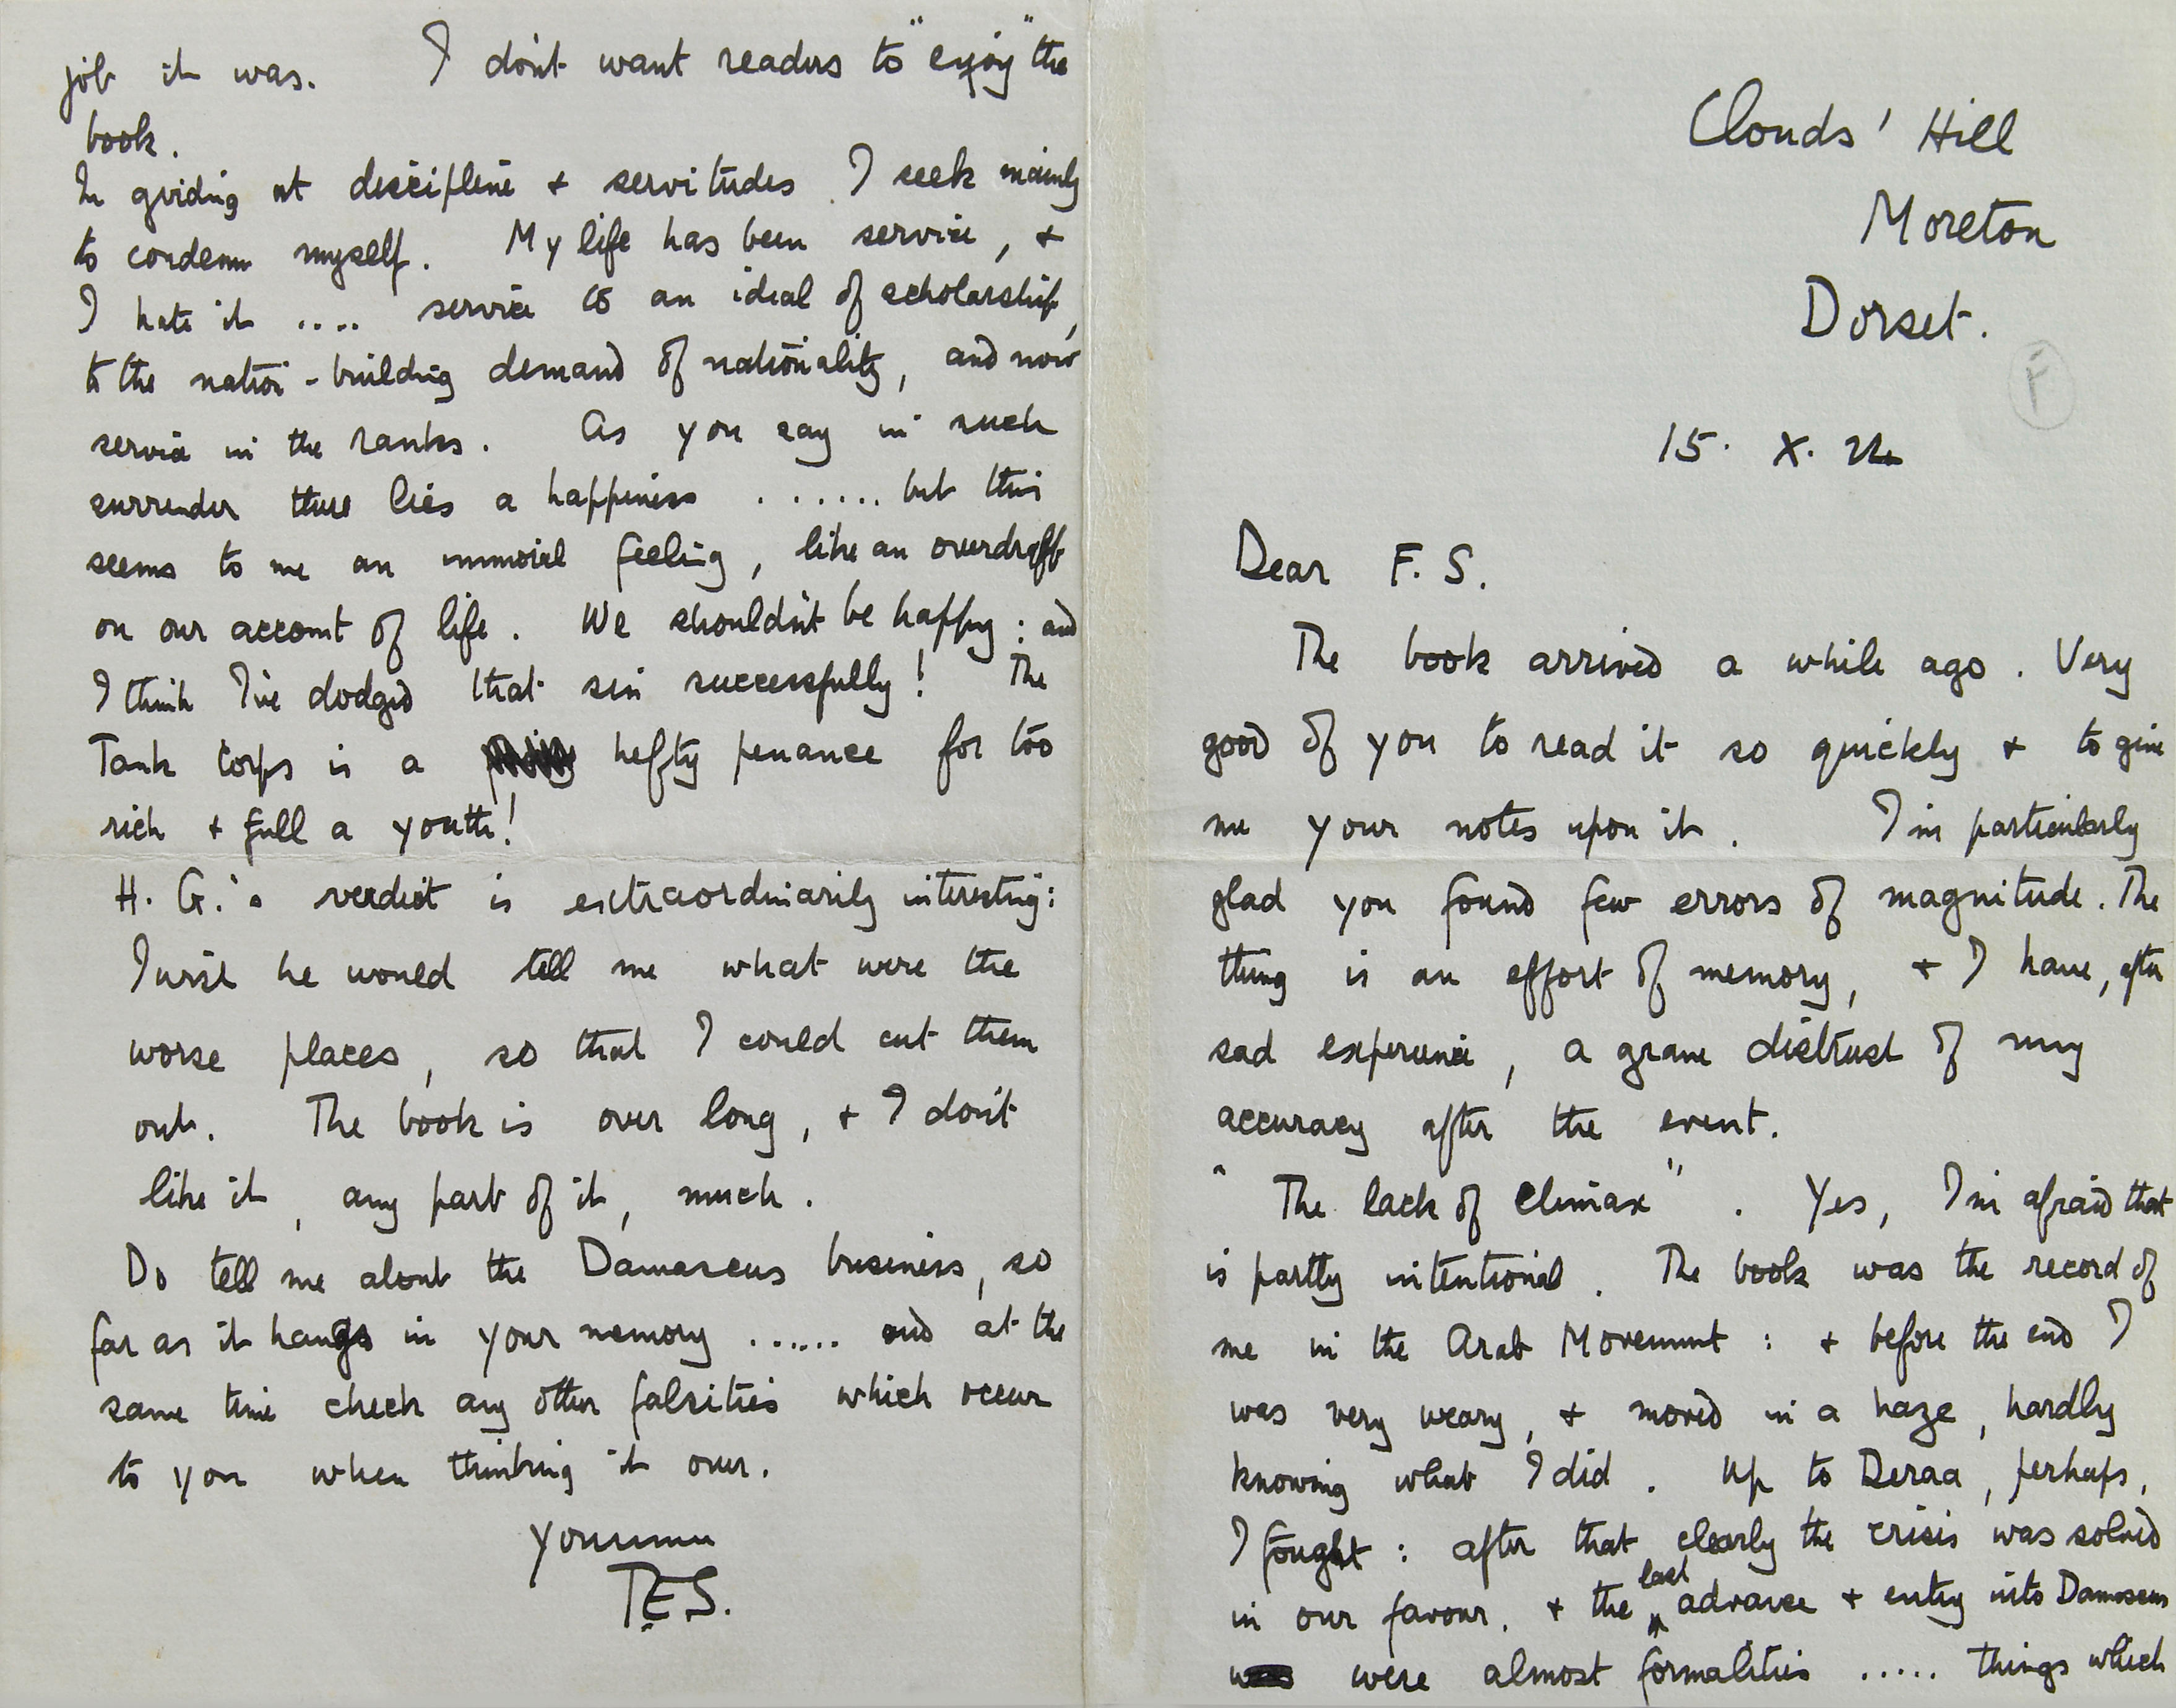 Clouds' Hill
Moreton
Dorset.
F
15. X. 24
Dear F. S.
The book arrived a while ago. Very
good of you to read it so quickly + to give
me your notes upon it. I'm particularly
glad you found few errors of magnitude. The
thing is an effort of memory, + I have, after
sad experience, a grave distrust of my
accuracy after the event.
"The lack of climax". Yes, I'm afraid that
is partly intentional. The book was the record of
me in the Arab Movement: + before the end I
was very weary, + moved in a haze, hardly
knowing what I did. Up to Deraa, perhaps,
I fought: after that clearly the crisis was solved
in our favour, + the last advance + entry into Damascus
were almost formalities ..... things which
job it was. I don't want readers to "enjoy" the
book.
In girding at discipline + servitudes I seek mainly
to condemn myself. My life has been service, +
I hate it .... service to an ideal of scholarship,
to the nation-building demand of nationality, and now
service in the ranks. As you say in such
surrender there lies a happiness ...... but this
seems to me an immoral feeling, like an overdraft
on our account of life. We shouldn't be happy: and
I think I've dodged that sin successfully! The
Tank Corps is a hefty penance for too
rich + full a youth!
H. G.'s verdict is extraordinarily interesting:
I wish he would tell me what were the
worse places, so that I could cut them
out. The book is over long, + I don't
like it, any part of it, much.
Do tell me about the Damascus business, so
far as it hangs in your memory ...... and at the
same time check any other falsities which occur
to you when thinking it over.
Yours
T.E.S.